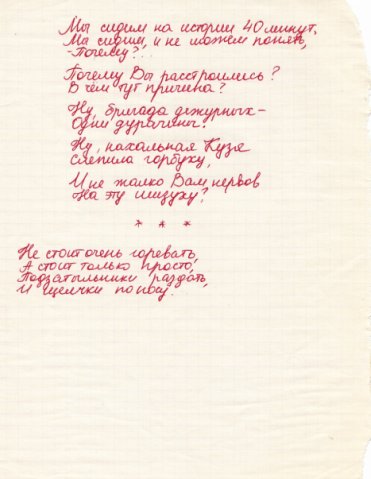 Мы сидим на истории 40 минут,
Мы сидим, и не можем понять,
-Почему?..
Почему Вы расстроились?
В чём тут причина?
Ну, бригада дежурных-
Одни дурачины!
Ну, нахальная Кузя
Слепила горбуху,
И не жалко Вам нервов
На эту шизуху?
* * *
Не стоит очень горевать,
А стоит только просто,
Подзатыльники раздать,
И щелчки по носу.